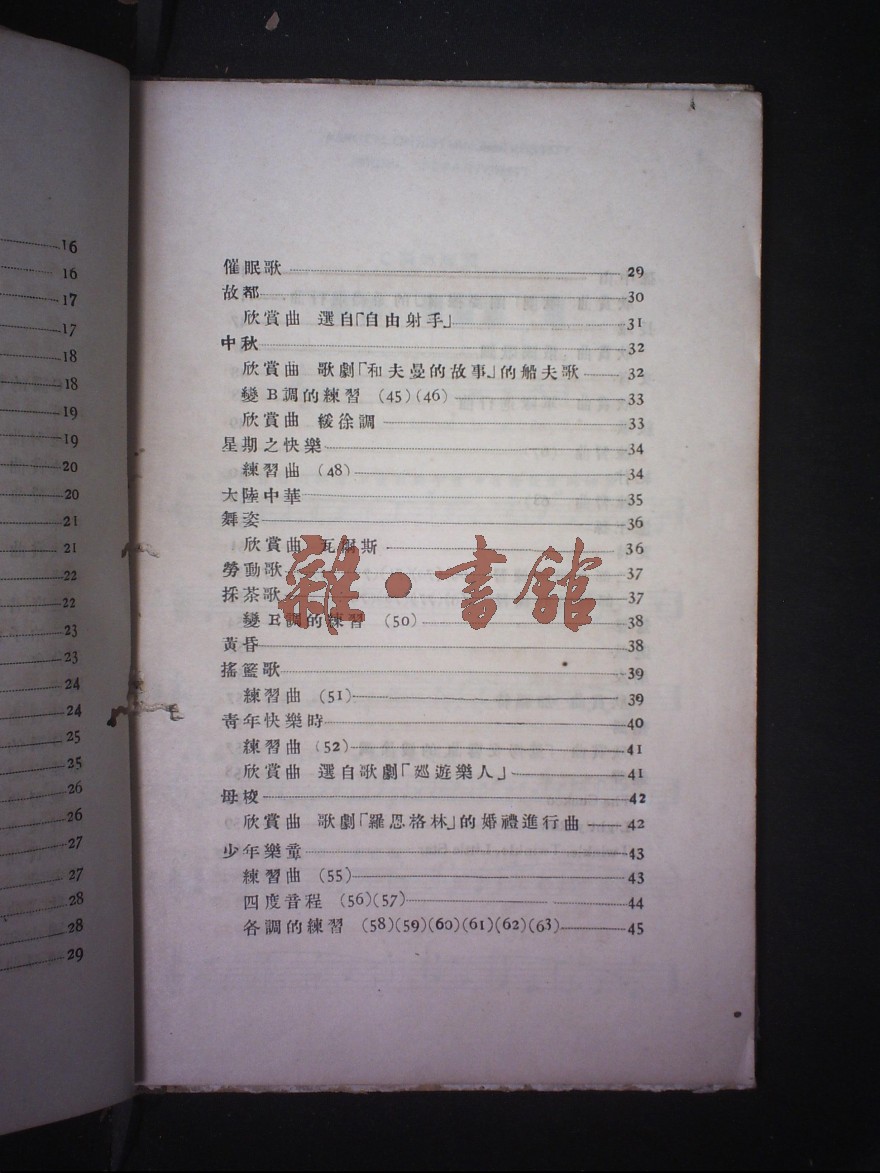 16
16
17
17
18
18
19
19
20
20
21
21
22
22
23
23
24
24
25
25
26
26
27
27
28
28
29
催眠歌 29
故都 30
欣賞曲 選自「自由射手」 31
中秋 32
欣賞曲 歌劇「和夫曼的故事」的船夫歌 32
變B調的練習 (45)(46) 33
欣賞曲 緩徐調 33
星期之快樂 34
練習曲 (48) 34
大陸中華 35
舞姿 36
欣賞曲 瓦爾斯 36
勞動歌 37
採茶歌 37
變E調的練習 (50) 38
黃昏 38
搖籃歌 39
練習曲 (51) 39
靑年快樂時 40
練習曲 (52) 41
欣賞曲 選自歌劇「廵遊樂人」 41
母校 42
欣賞曲 歌劇「羅恩格林」的婚禮進行曲 42
少年樂童 43
練習曲 (55) 43
四度音程 (56)(57) 44
各調的練習 (58)(59)(60)(61)(62)(63) 45
雜·書館